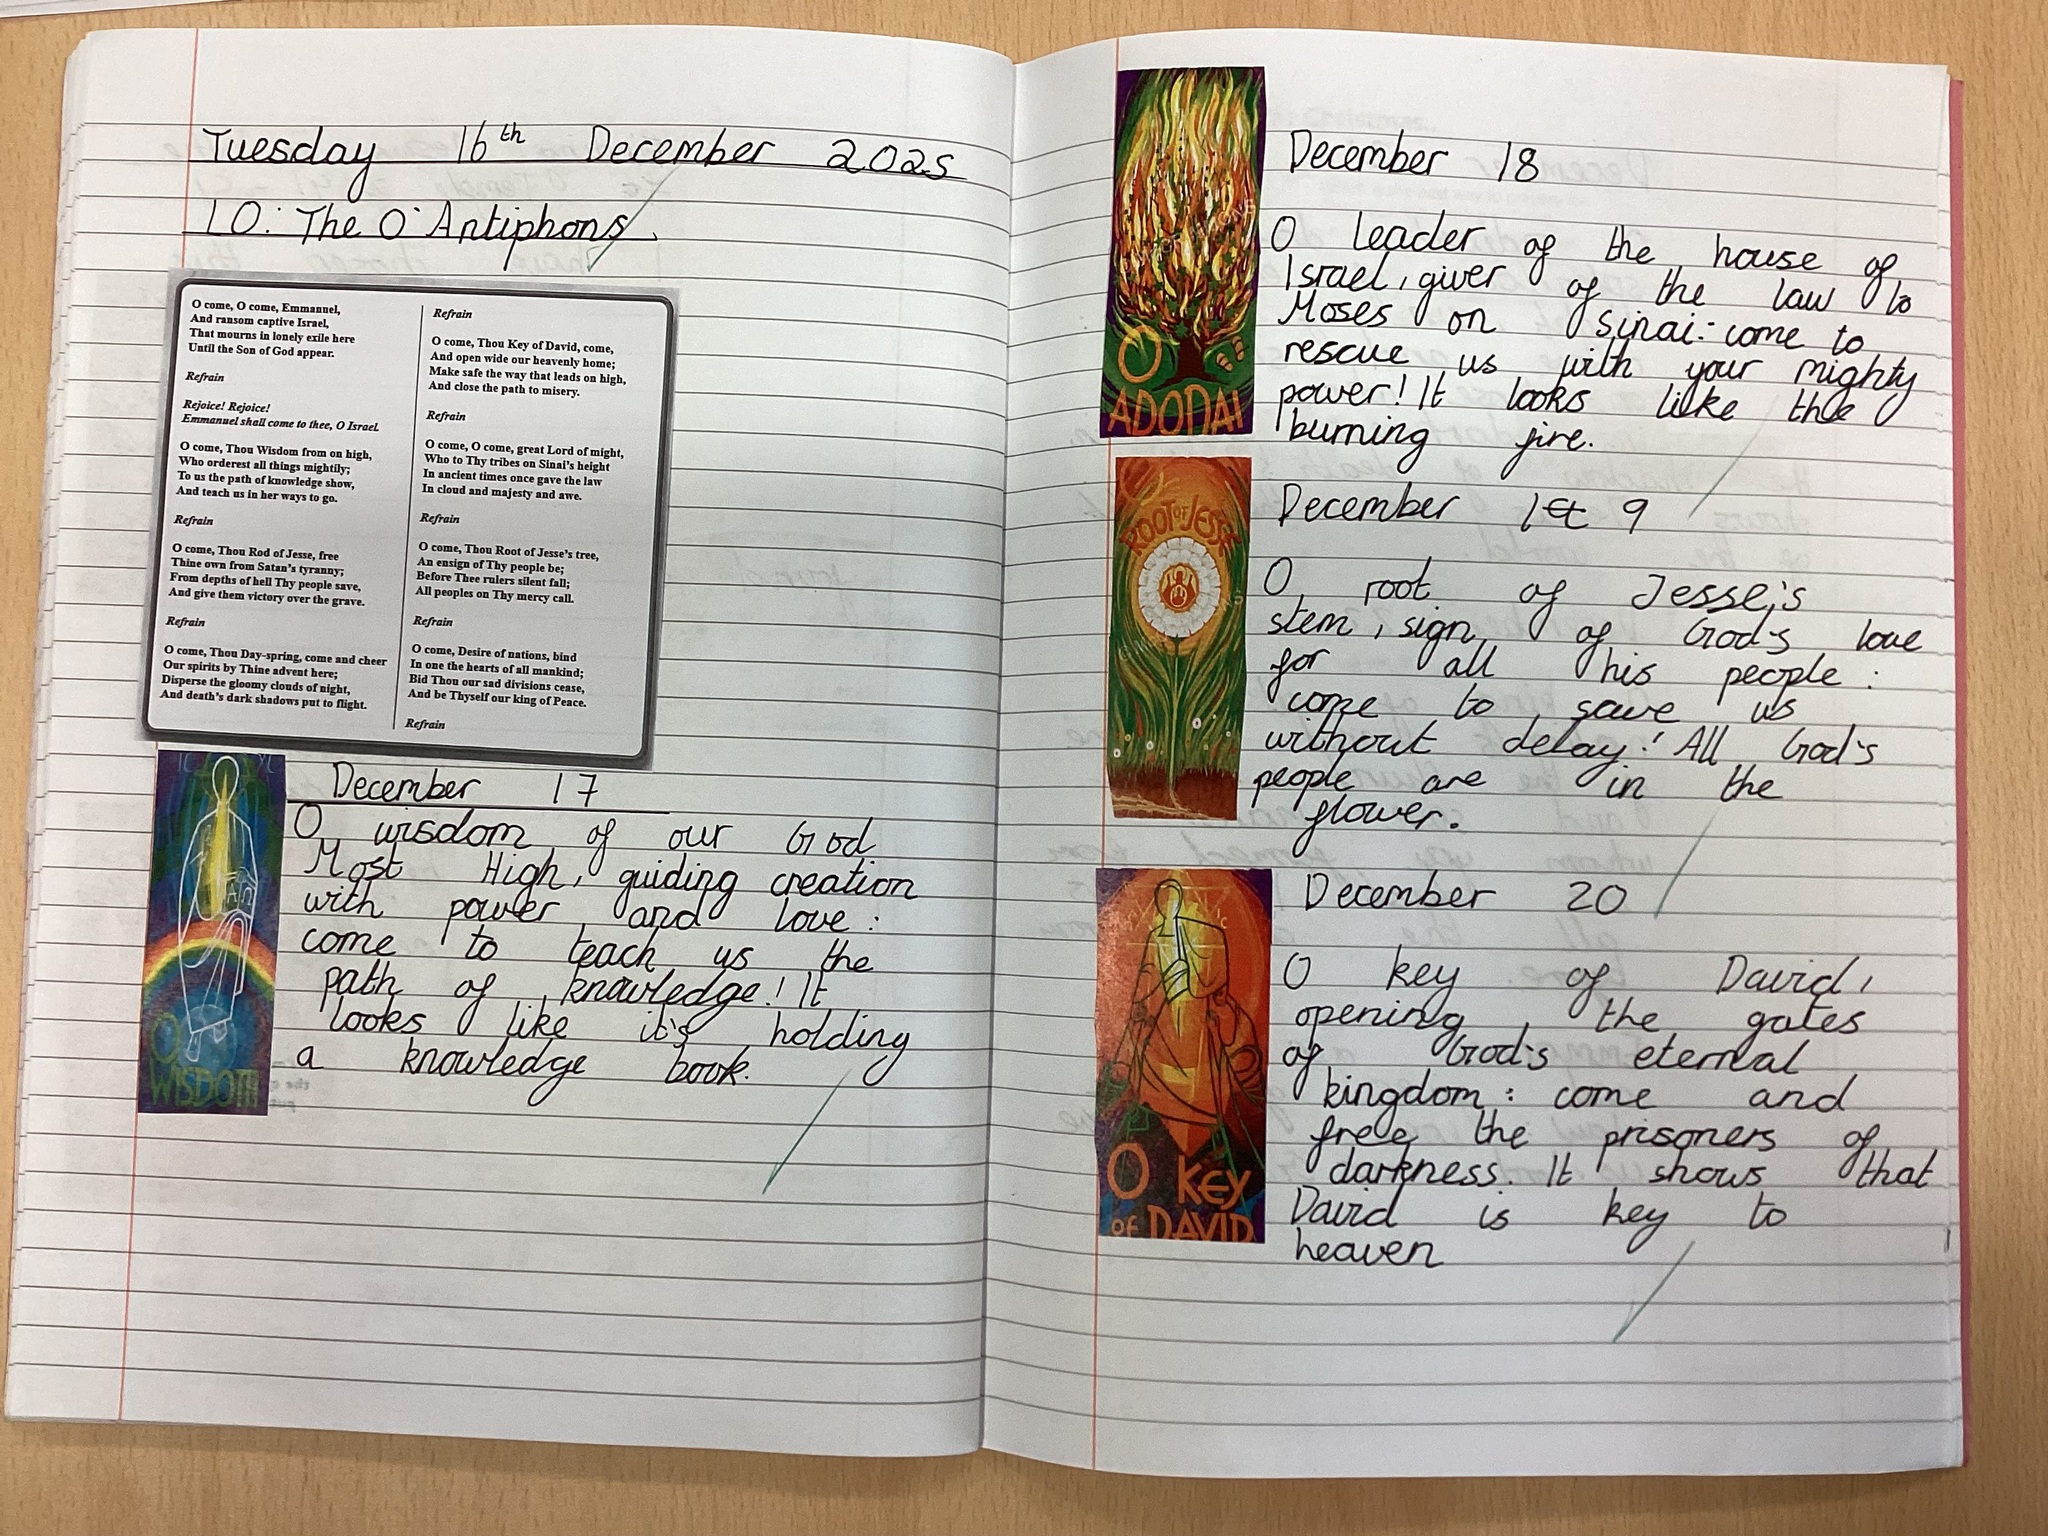 Tuesday 16th December 2025
LO: The O'Antiphons
O come, O come, Emmanuel,
And ransom captive Israel,
That mourns in lonely exile here
Until the Son of God appear.
Refrain
Rejoice! Rejoice!
Emmanuel shall come to thee, O Israel.
O come, Thou Wisdom from on high,
Who orderest all things mightily;
To us the path of knowledge show,
And teach us in her ways to go.
Refrain
O come, Thou Rod of Jesse, free
Thine own from Satan's tyranny;
From depths of hell Thy people save,
And give them victory over the grave.
Refrain
O come, Thou Day-spring, come and cheer
Our spirits by Thine advent here;
Disperse the gloomy clouds of night,
And death's dark shadows put to flight.
Refrain
O come, Thou Key of David, come,
And open wide our heavenly home;
Make safe the way that leads on high,
And close the path to misery.
Refrain
O come, O come, great Lord of might,
Who to Thy tribes on Sinai's height
In ancient times once gave the law
In cloud and majesty and awe.
Refrain
O come, Thou Root of Jesse's tree,
An ensign of Thy people be;
Before Thee rulers silent fall;
All peoples on Thy mercy call.
Refrain
O come, Desire of nations, bind
In one the hearts of all mankind;
Bid Thou our sad divisions cease,
And be Thyself our king of Peace.
Refrain
O
WISDOM
December 17
O wisdom of our God
Most High, guiding creation
with power and love:
come to teach us the
path of knowledge! It
looks like it's holding
a knowledge book.
O
ADONAI
December 18
O leader of the house of
Israel, giver of the law to
Moses on Sinai: come to
rescue us with your mighty
power! It looks like the
burning fire.
ROOT OF JESSE
December 19
O root of Jesse's
stem, sign of God's love
for all his people:
come to save us
without delay! All God's
people are in the
flower.
O KEY
OF DAVID
December 20
O key of David,
opening the gates
of God's eternal
kingdom: come and
free the prisoners of
darkness. It shows that
David is key to
heaven